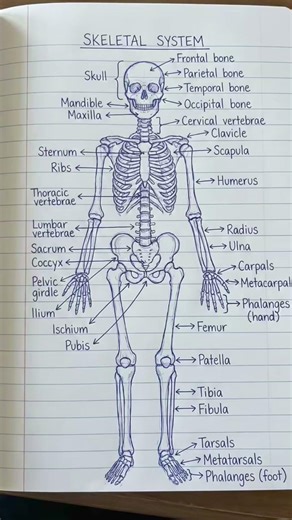 SKELETAL SYSTEM
Frontal bone
Skull
Parietal bone
Temporal bone
Mandible
Occipital bone
Maxilla
Cervical vertebrae
Clavicle
Sternum
Scapula
Ribs
Humerus
Thoracic
vertebrae
Lumbar
vertebrae
Radius
Ulna
Sacrum
Coccyx
Carpals
Pelvic
girdle
Metacarpal
Ilium
Phalanges
(hand)
Ischium
Femur
Pubis
Patella
Tibia
Fibula
Tarsals
Metatarsals
Phalanges (foot)